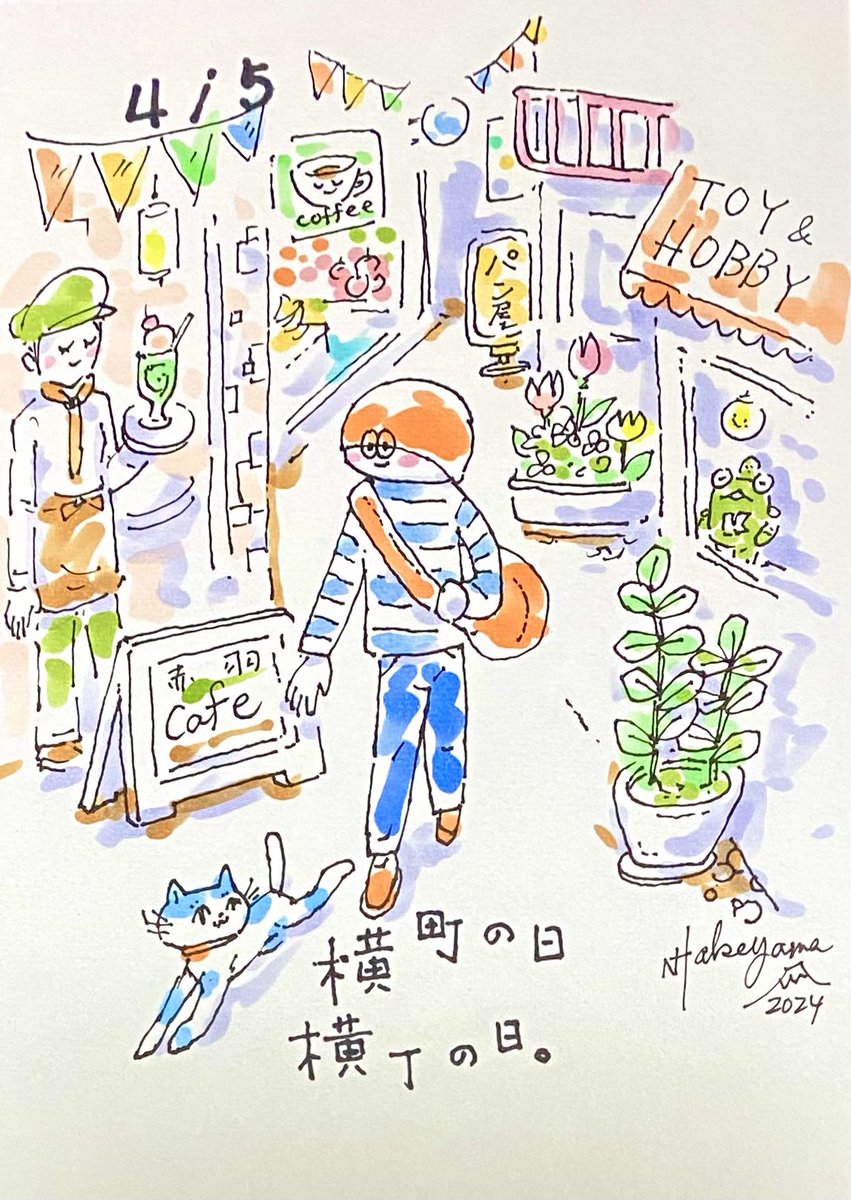 4/5
coffee
パン屋
TOY &
HOBBY
赤羽
cafe
横町の日
横丁の日。
by
Hakeyama
2024